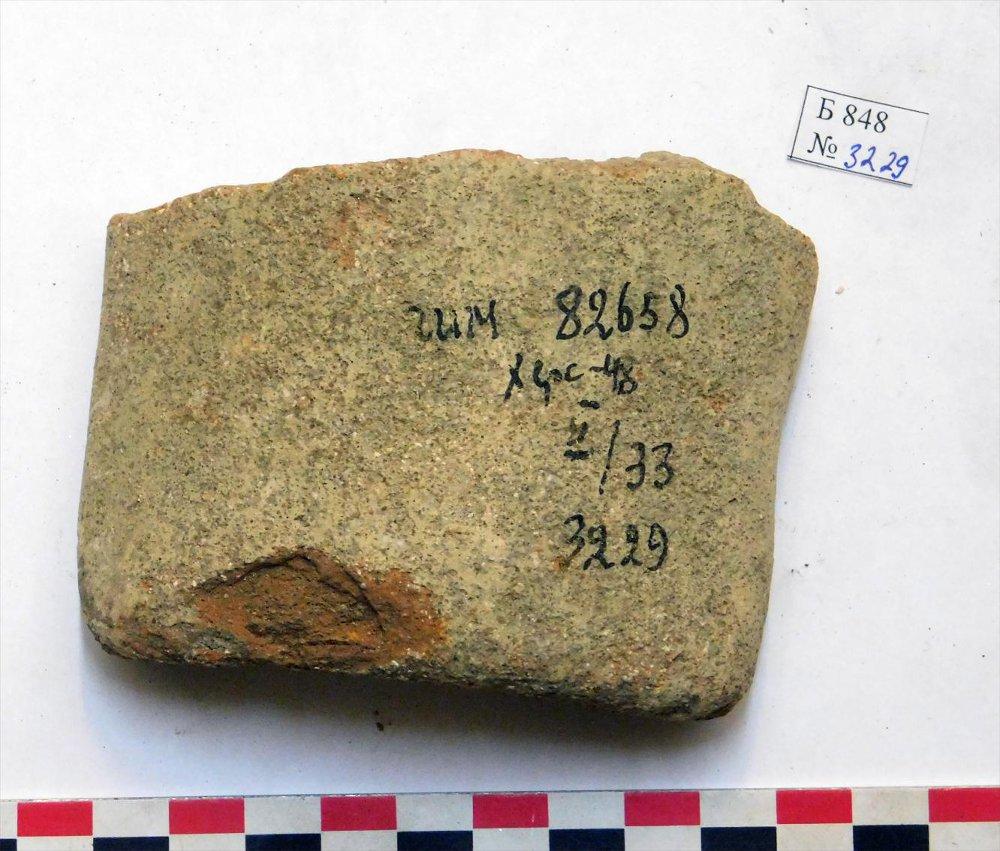 Б 848
№ 3229
ГИМ 82658
Херс-48
II/33
3229